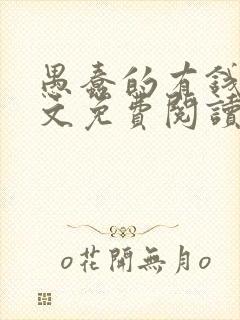 愚蠢的有錢
文免費閱讀
o花開無月o